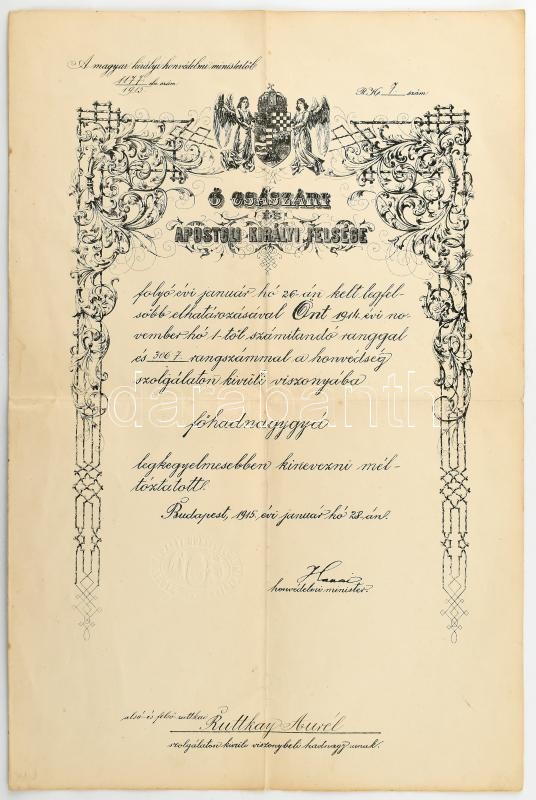 A magyar királyi honvédelmi ministertől
1177. eln. szám
1915
R. Ho 7 szám
Ő CSÁSZÁRI
ÉS
APOSTOLI KIRÁLYI FELSÉGE
folyó évi január hó 26-án kelt legfel-
sőbb elhatározásával Önt 1914. évi no-
vember hó 1-től számítandó ranggal
és 306 7 rangszámmal a honvédség
szolgálaton kívüli viszonyába
főhadnagygyá
legkegyelmesebben kinevezni mél-
tóztatott.
Budapest, 1915. évi január hó 28-án.
Hazai
honvédelmi minister.
alsó és felső ruttkai
Ruttkay Aurél
szolgálaton kívüli viszonybeli hadnagy urnak.
darabanth